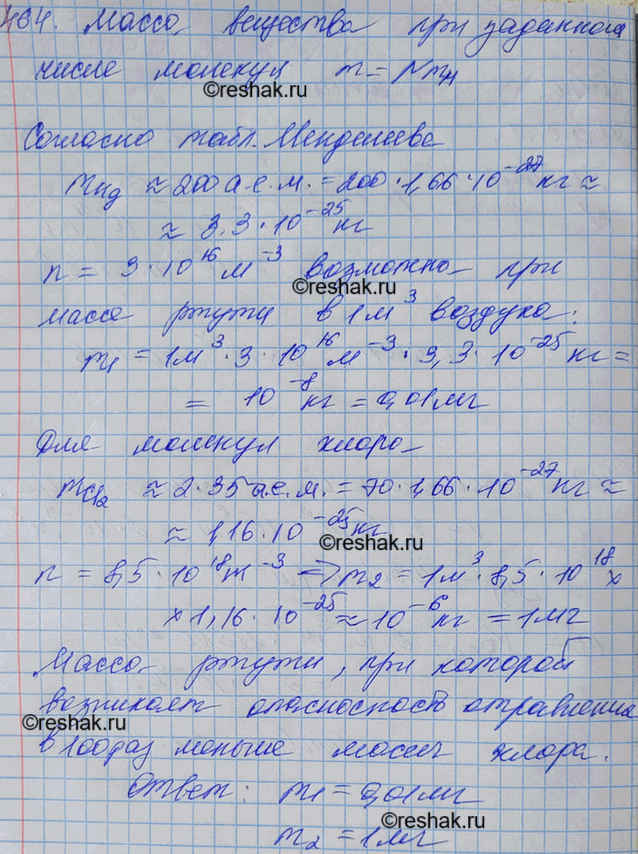 464. Масса вещества при заданном
числе молекул m = Nm₁
©reshak.ru
Согласно табл. Менделеева
m_Hg ≈ 200 а.е.м. = 200 · 1,66 · 10⁻²⁷ кг ≈
≈ 3,3 · 10⁻²⁵ кг
n = 3 · 10¹⁶ м⁻³ возможно при
©reshak.ru
массе ртути в 1 м³ воздуха:
m₁ = 1 м³ · 3 · 10¹⁶ м⁻³ · 3,3 · 10⁻²⁵ кг =
= 10⁻⁸ кг = 0,01 мг
Для молекул хлора
m_Cl₂ ≈ 2 · 35 а.е.м. = 70 · 1,66 · 10⁻²⁷ кг ≈
≈ 1,16 · 10⁻²⁵ кг
©reshak.ru
n = 8,5 · 10¹⁸ м⁻³ => m₂ = 1 м³ · 8,5 · 10¹⁸ ×
× 1,16 · 10⁻²⁵ ≈ 10⁻⁶ кг = 1 мг
Масса ртути, при которой
возникает опасность отравления
©reshak.ru
в 100 раз меньше массы хлора.
Ответ: m₁ = 0,01 мг
m₂ = 1 мг
©reshak.ru